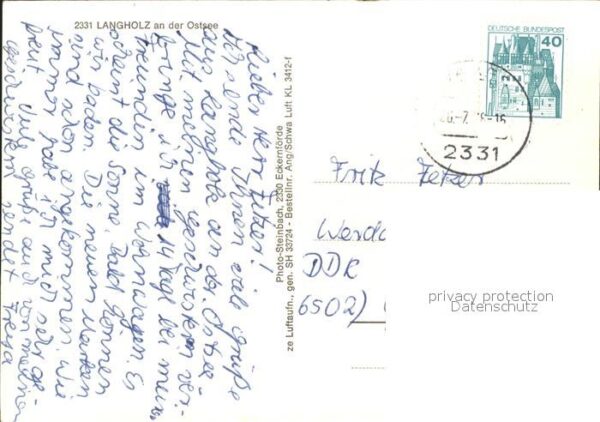 2331 LANGHOLZ an der Ostsee
Lieber Herr Fetzer!
Ich sende Ihnen viele Grüße
aus Langholz an der Ostsee.
Mit meinen Geschwistern ver-
bringe ich 14 Tage bei meiner
Freundin im Wohnwagen. Es
scheint die Sonne, bald können
wir baden. Die neuen Marken
sind schon angekommen. Wie
immer habe ich mich sehr ge-
freut. Viele Grüße auch von meinen
Geschwistern sendet Freya
Photo-Steinbach, 2330 Eckernförde
ze Luftaufn., gen. SH 33724 - Bestellnr. Ang/Schwa Luft KL 3412-f
DEUTSCHE BUNDESPOST
40
2331
Fritz Fetzer
Werda
DDR
6502)
privacy protection
Datenschutz